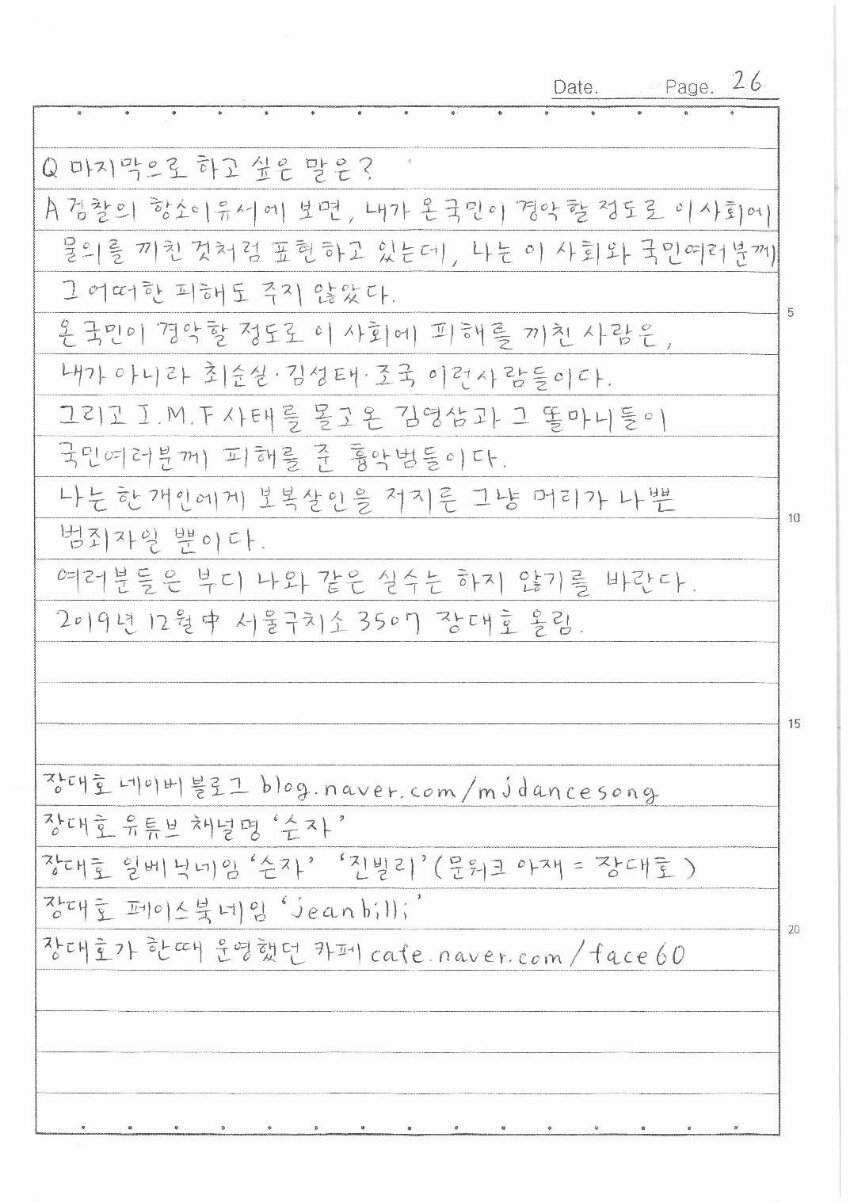 Date. Page. 26
Q 마지막으로 하고 싶은 말은?
A 검찰의 항소이유서에 보면, 내가 온국민이 경악할 정도로 이 사회에
물의를 끼친 것처럼 표현하고 있는데, 나는 이 사회와 국민여러분께
그 어떠한 피해도 주지 않았다.
5
온 국민이 경악할 정도로 이 사회에 피해를 끼친 사람은,
내가 아니라 최순실·김성태·조국 이런사람들이다.
그리고 I.M.F 사태를 몰고온 김영삼과 그 똘마니들이
국민여러분께 피해를 준 흉악범들이다.
나는 한 개인에게 보복살인을 저지른 그냥 머리가 나쁜
10
범죄자일 뿐이다.
여러분들은 부디 나와 같은 실수는 하지 않기를 바란다.
2019년 12월 中 서울구치소 3507 장대호 올림.
15
장대호 네이버 블로그 blog.naver.com/mjdancesong
장대호 유튜브 채널명 '손자'
장대호 일베닉네임 '손자' '진빌리' (문워크 아재 = 장대호)
장대호 페이스북네임 'jeanbilli'
20
장대호가 한때 운영했던 카페 cafe.naver.com/face60